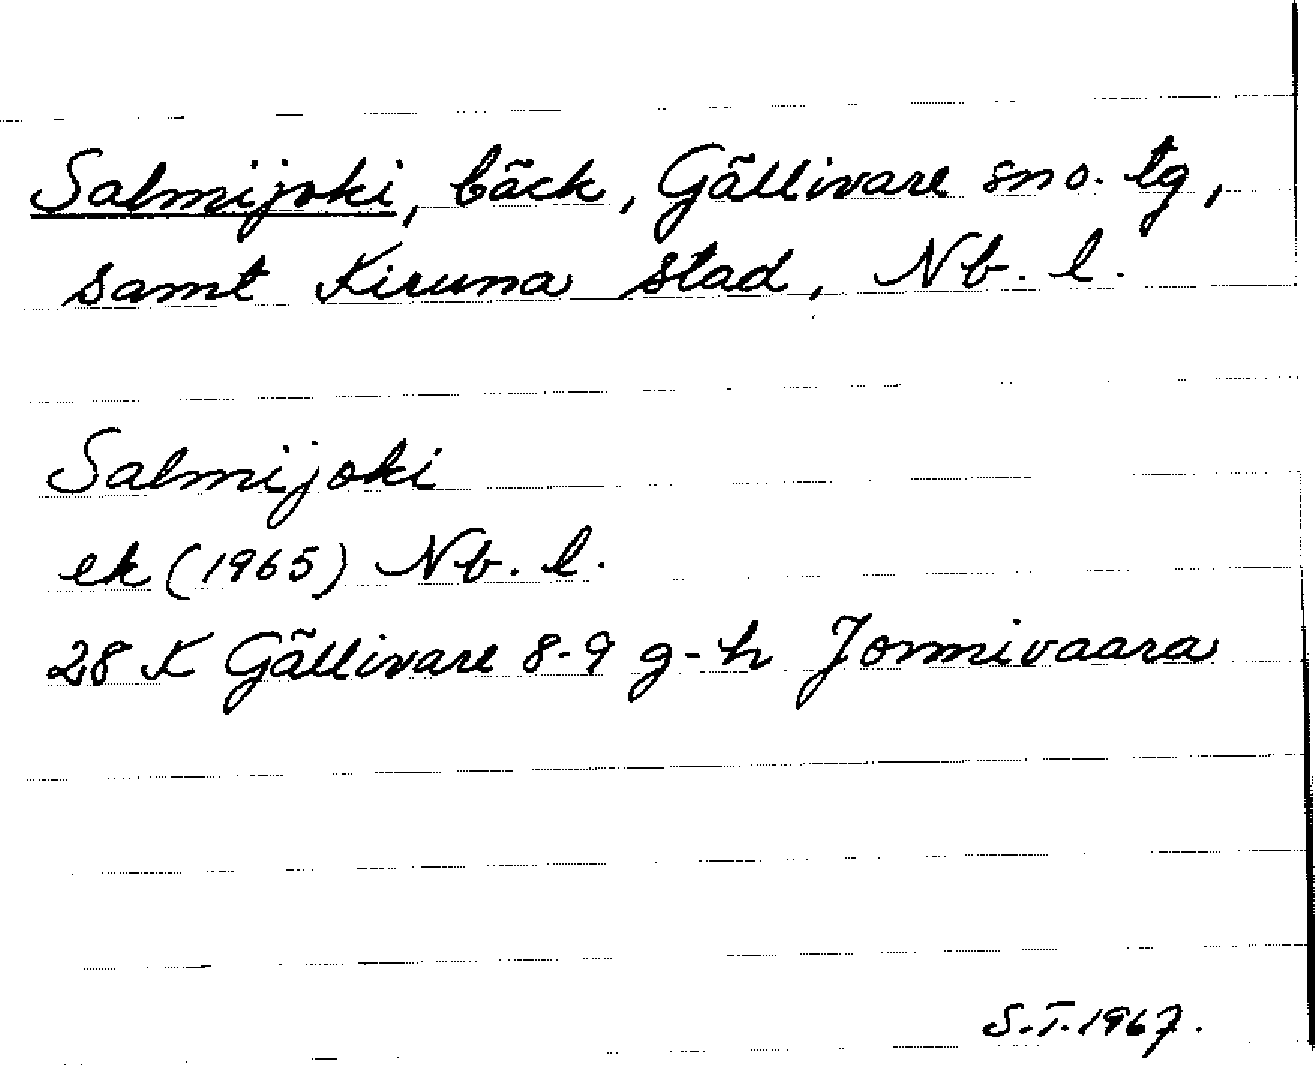 Salmijoki, bäck, Gällivare sn o. tg,
samt Kiruna stad, Nb. l.
Salmijoki
ek (1965) Nb. l.
28 K Gällivare 8-9 g-h Jommivaara
S.T. 1967.